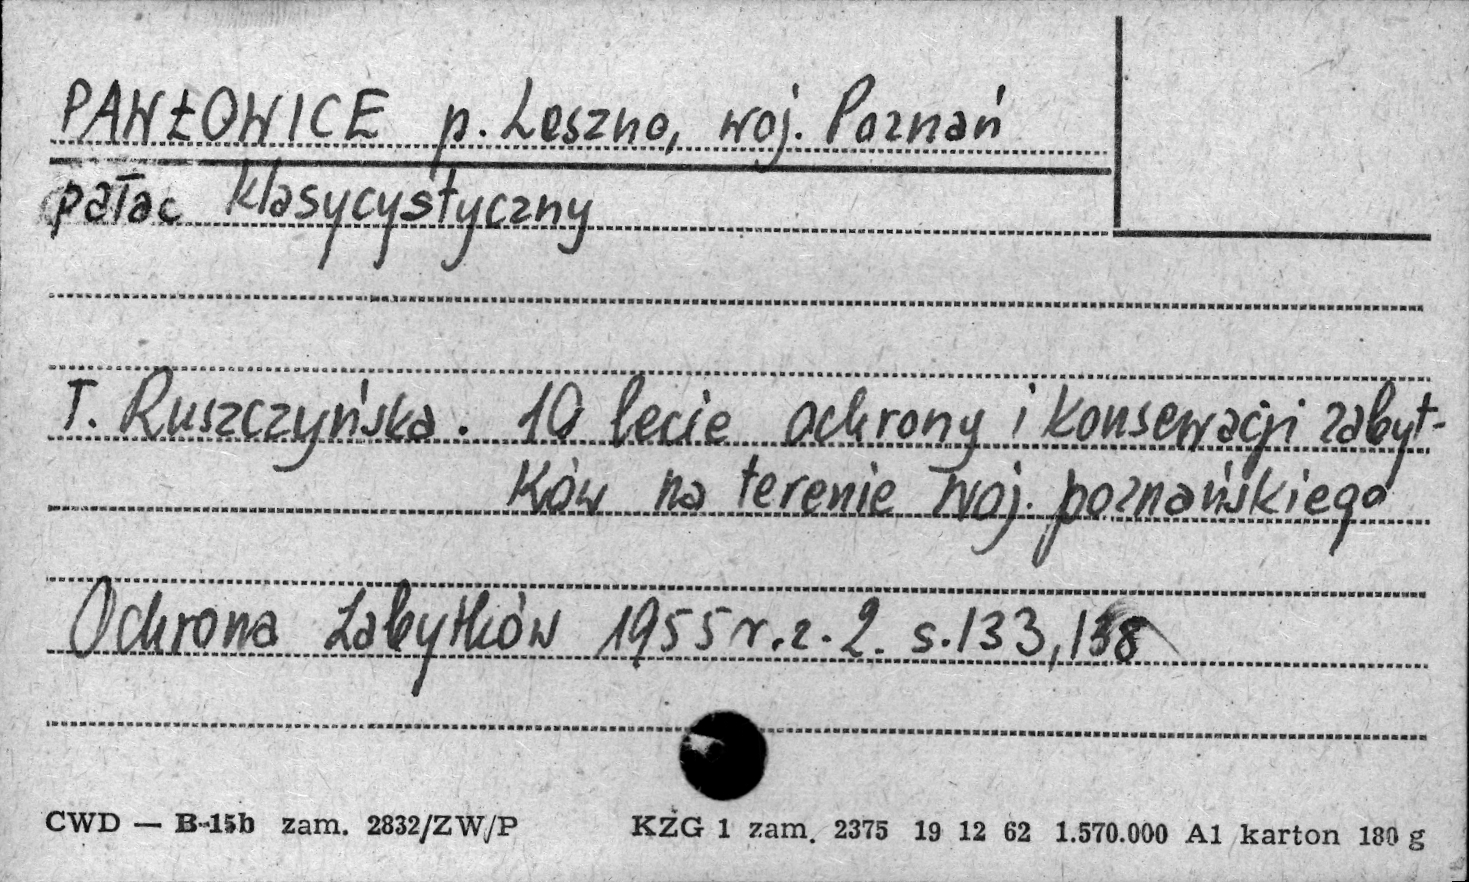 PAWŁOWICE p. Leszno, woj. Poznań
pałac klasycystyczny
T. Ruszczyńska. 10 lecie ochrony i konserwacji zabyt-
ków na terenie woj. poznańskiego
Ochrona Zabytków 1955 r. z. 2. s. 133, 138
CWD — B-15b zam. 2832/ZW/P KZG 1 zam. 2375 19 12 62 1.570.000 A1 karton 180 g